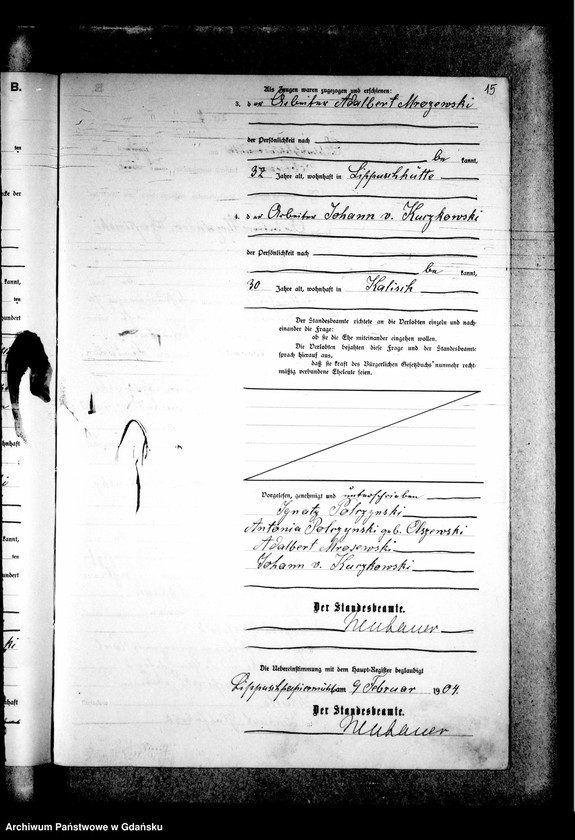 B.
15
Als Zeugen waren zugezogen und erschienen:
3. der Arbeiter Adalbert Mrozewski
der Persönlichkeit nach
be kannt,
32 Jahre alt, wohnhaft in Lippuschhütte
4. der Arbeiter Johann v. Kuczkowski
der Persönlichkeit nach
be kannt,
30 Jahre alt, wohnhaft in Kalisch
Der Standesbeamte richtete an die Verlobten einzeln und nach-
einander die Frage:
ob sie die Ehe miteinander eingehen wollen.
Die Verlobten bejahten diese Frage und der Standesbeamte
sprach hierauf aus,
daß sie kraft des Bürgerlichen Gesetzbuchs nunmehr recht-
mäßig verbundene Eheleute seien.
Vorgelesen, genehmigt und unterschrieben
Ignatz Polczynski
Antonia Polczynski geb. Olszewski
Adalbert Mrosewski
Johann v. Kuczkowski
Der Standesbeamte.
Neubauer
Die Uebereinstimmung mit dem Haupt-Register beglaubigt
Lippuschpapiermühl am 9 Februar 1904.
Der Standesbeamte.
Neubauer
Archiwum Państwowe w Gdańsku